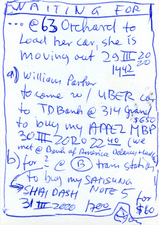 WAITING FOR
... @ 63 Orchard to
Load her car, she is
moving out 29 III 2020
1442
a) William Parker
to come w/ UBER car
to TD Bank @ 314 Grand
to buy my APPLE MBP $650
30 III 2020 2240 (we
met @ Bank of America
b) for ? @ B train station
to buy my SAMSUNG
NOTE 5
SHAI DASH
31 III 2020 1700
for
$60